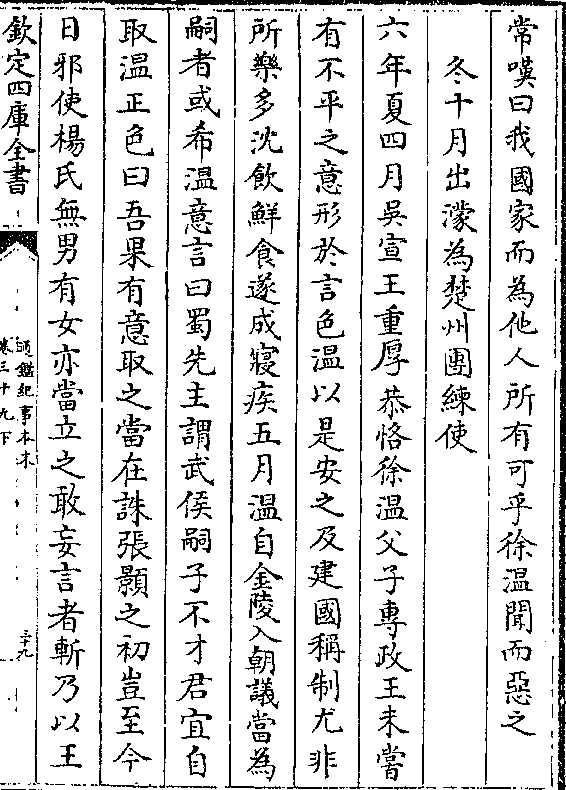 常嘆曰我國家而為他人所有可乎徐溫聞而惡之
冬十月出濛為楚州團練使
六年夏四月吳宣王重厚恭恪徐溫父子專政王未嘗
有不平之意形於言色溫以是安之及建國稱制尤非
所樂多沈飲鮮食遂成寢疾五月溫自金陵入朝議當為
嗣者或希溫意言曰蜀先主謂武侯嗣子不才君宜自
取溫正色曰吾果有意取之當在誅張顥之初豈至今
日邪使楊氏無男有女亦當立之敢妄言者斬乃以王
欽定四庫全書
通鑑紀事本末
卷三十九下
三十九